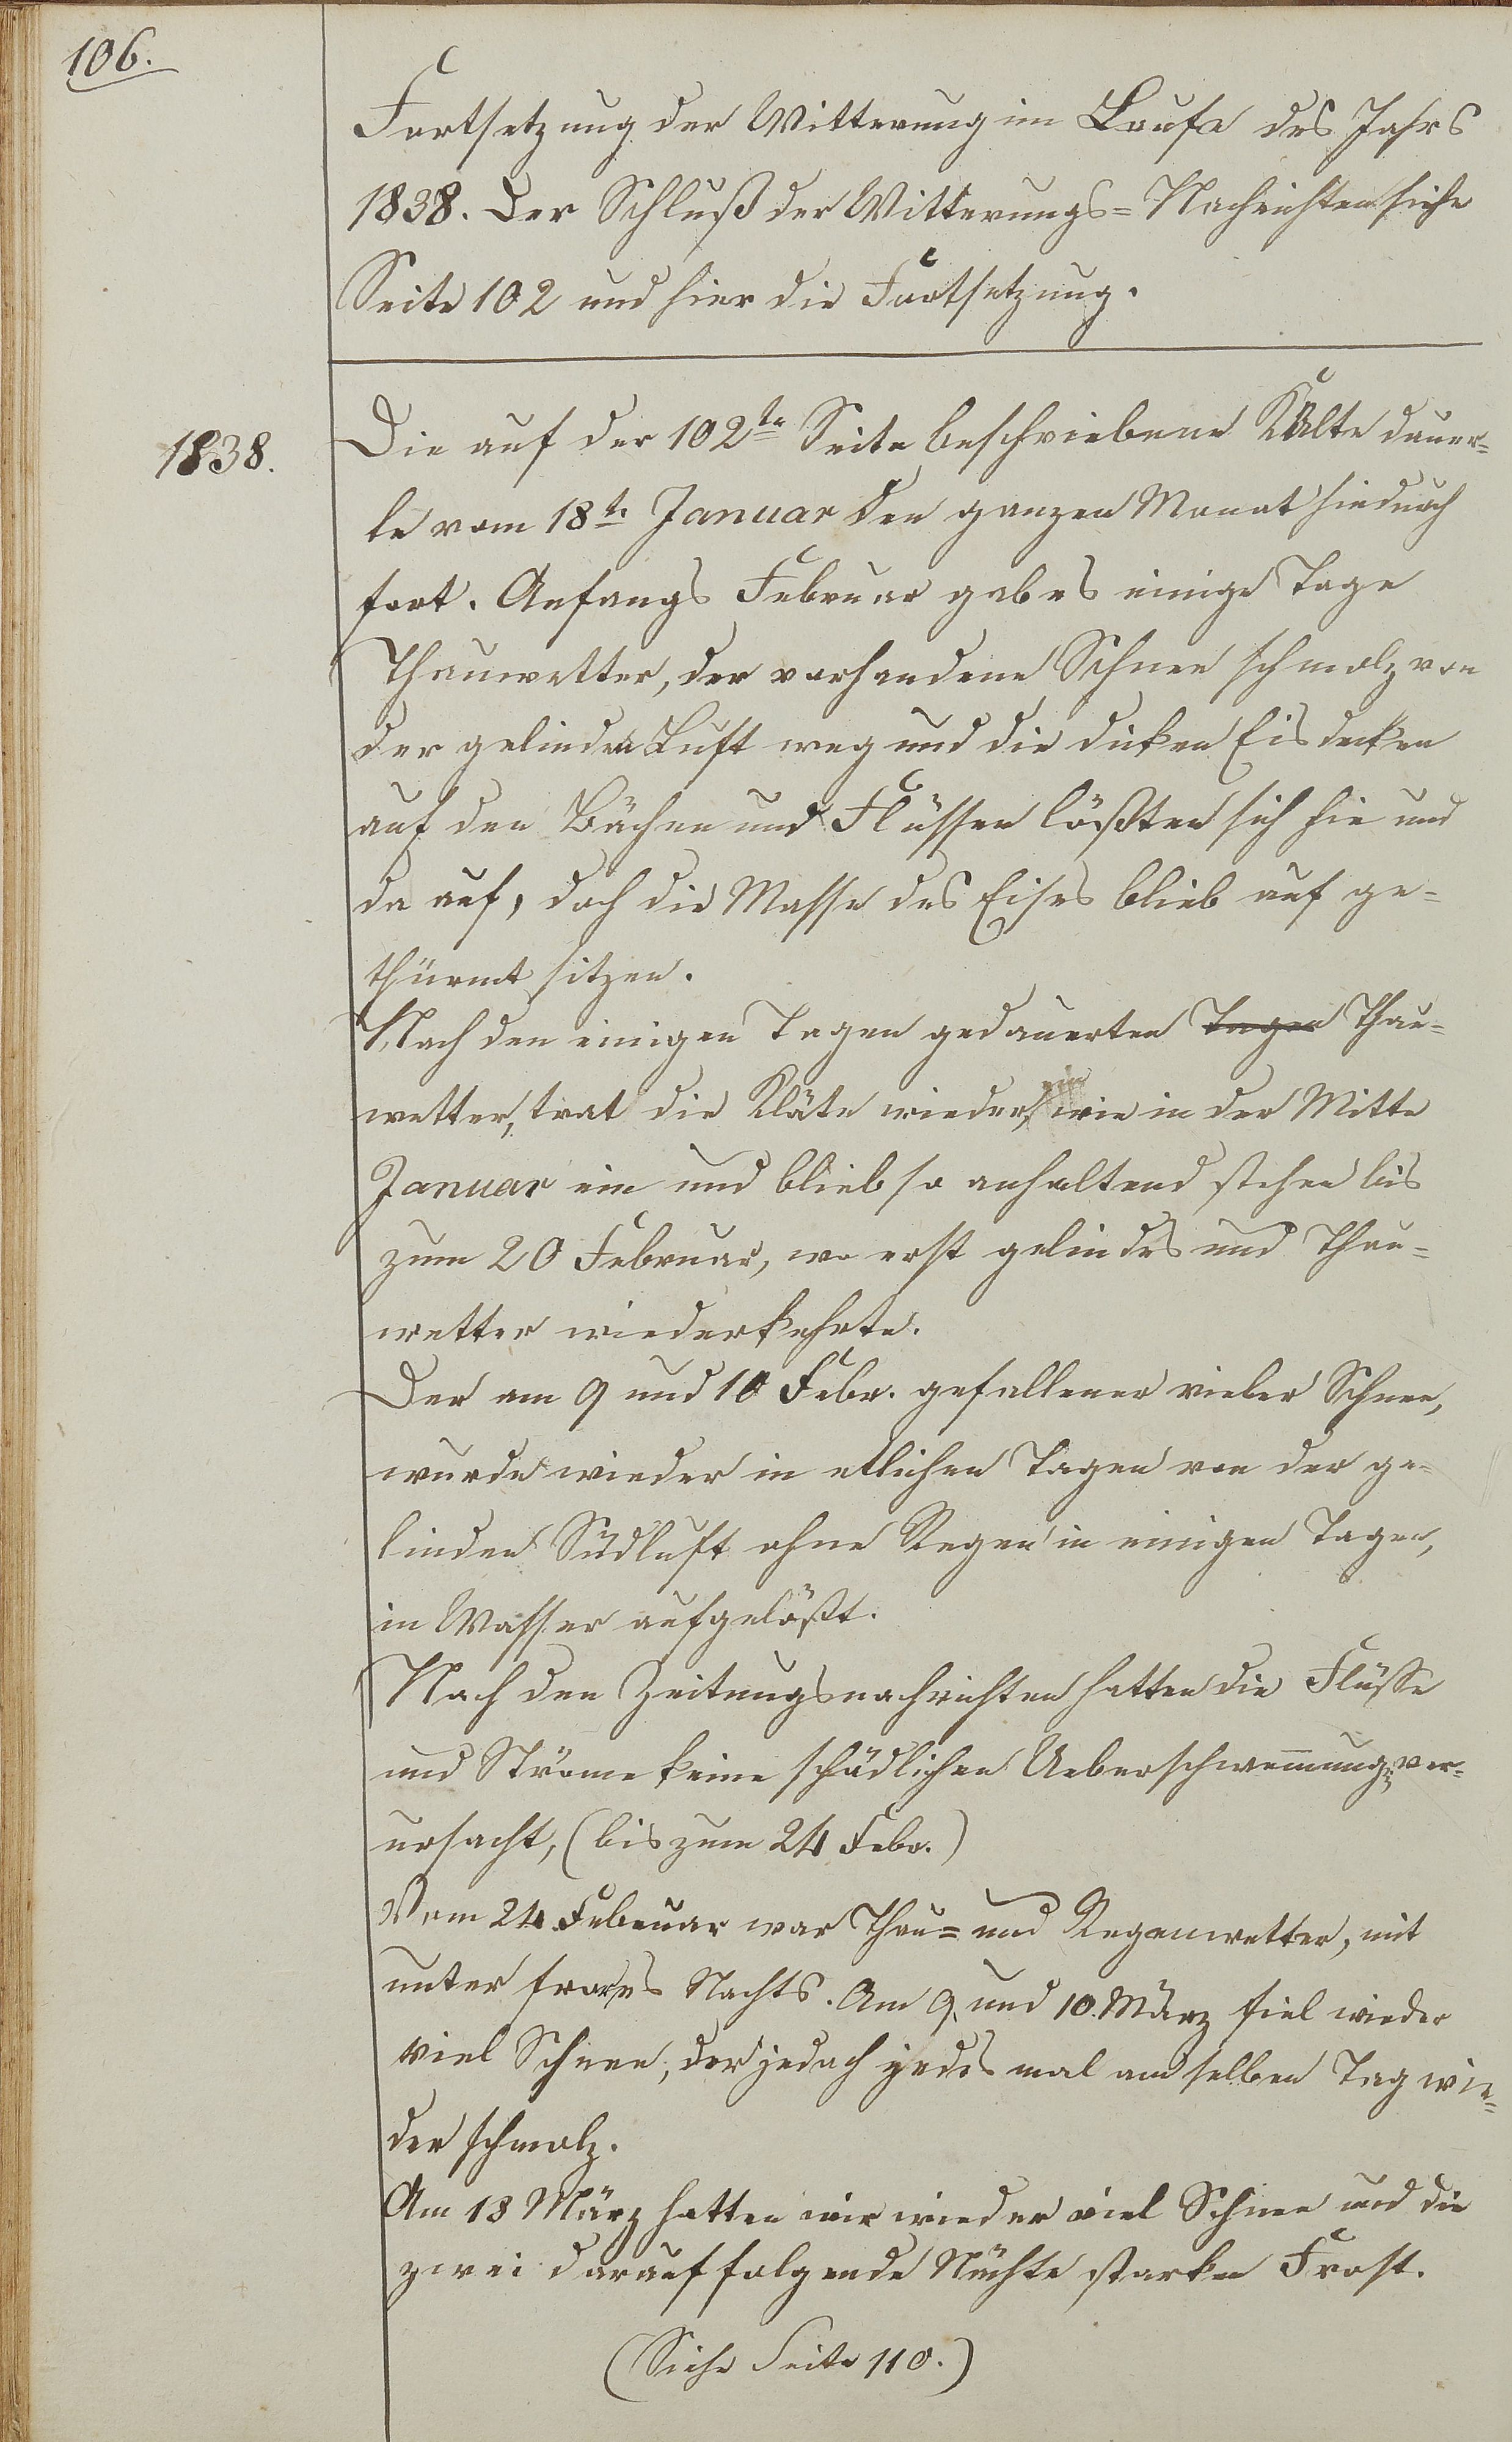 106.
Fortsetzung der Witterung im Laufe des Jahrs
1838. Der Schluß der Witterungs=Nachrichten siehe
Seite 102 und hier die Fortsetzung.
1838.
Die auf der 102te Seite beschriebene Kälte dauer=
te vom 18t. Januar den ganzen Monat hindurch
fort. Anfangs Februar gab es einige Tage
Thauwetter, der vorhandene Schnee schmolz von
der gelinden Luft weg und die dicken Eisdecken
auf den Bächen und Flüssen lößten sich hie und
da auf, doch die Masse des Eises blieb auf ge=
thürmt sitzen.
Nach den einigen Tagen gedauerten Tagen Thau=
wetter, trat die Kläte wieder, wie in der Mitte
Januar ein und blieb so anhaltend stehen bis
zum 20 Februar, wo erst gelindes und Thau=
wetter wiederkehrte.
Der am 9 und 10 Febr. gefallener vieler Schnee,
wurde wieder in etlichen Tagen von der ge=
linden Südluft ohne Regen in einigen Tagen,
in Wasser aufgelößt.
Nach den Zeitungsnachrichten hatten die Flüsse
und Ströme keine schädlichen Ueberschwem̄ungen ver=
ursacht, (bis zum 24 Febr.)
Vom 24 Februar war Thau= und Regenwetter, mit
unter fror es Nachts. Am 9. und 10. März fiel wieder
viel Schnee, der jedoch jedes mal am selben Tag wie=
der schmolz.
Am 18 März hatten wir wieder viel Schnee und die
zwei darauf folgende Nächte starken Frost.
(Siehe Seite 110.)